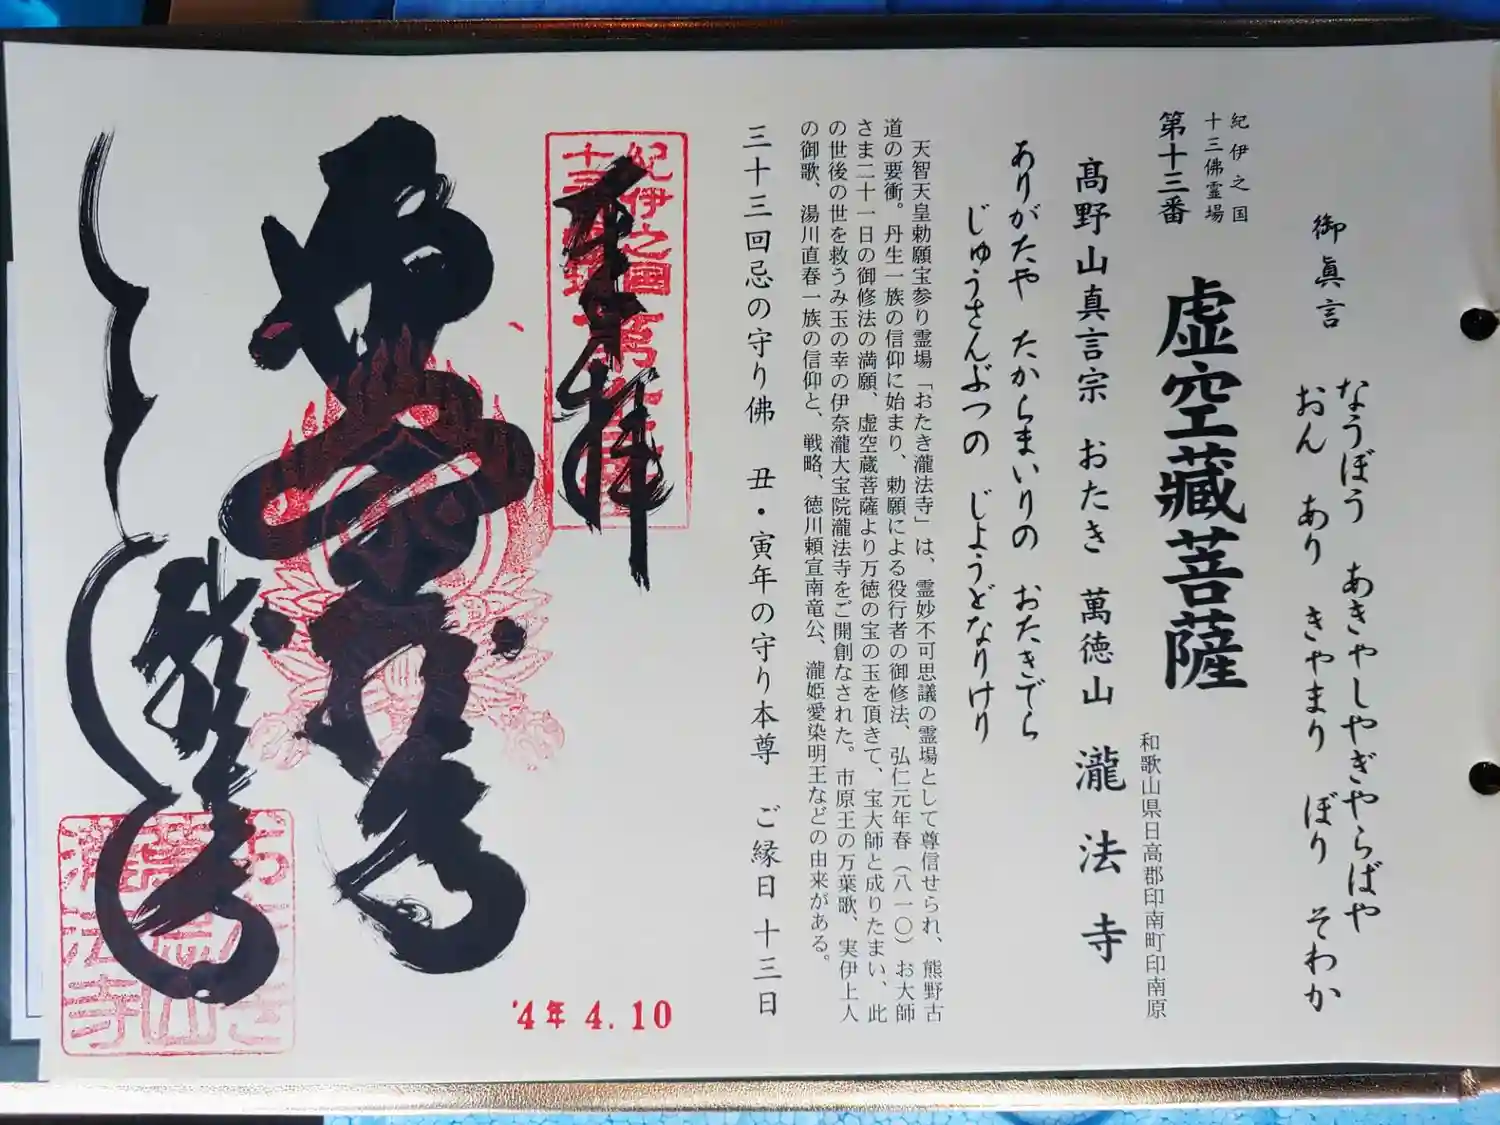 御眞言
なうぼう あきやしやぎやらばや
おん あり きやまり ぼり そわか
紀伊之国
十三佛霊場
第十三番
虚空藏菩薩
和歌山県日高郡印南町印南原
髙野山真言宗 おたき 萬徳山 瀧法寺
ありがたや たからまいりの おたきでら
じゅうさんぶつの じょうどなりけり
天智天皇勅願宝参り霊場「おたき瀧法寺」は、霊妙不可思議の霊場として尊信せられ、熊野古
道の要衝。丹生一族の信仰に始まり、勅願による役行者の御修法、弘仁元年春（八一〇）お大師
さま二十一日の御修法の満願、虚空蔵菩薩より万徳の宝の玉を頂きて、宝大師と成りたまい、此
の世後の世を救うみ玉の幸の伊奈瀧大宝院瀧法寺をご開創なされた。市原王の万葉歌、実伊上人
の御歌、湯川直春一族の信仰と、戦略、徳川頼宣南竜公、瀧姫愛染明王などの由来がある。
三十三回忌の守り佛 丑・寅年の守り本尊 ご縁日 十三日
紀伊之國
奉拝
瀧法寺
'4年 4.10